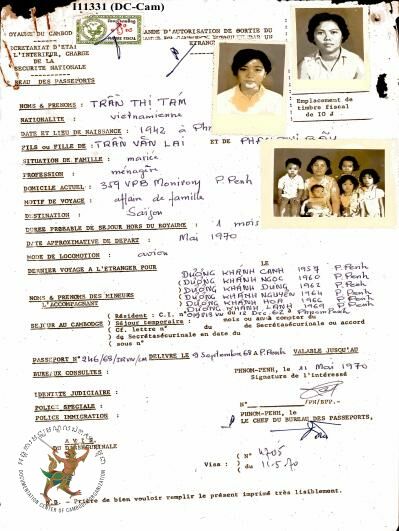 111331 (DC-Cam)
ROYAUME DU CAMBOD
DEMANDE D'AUTORISATION DE SORTIE DU
SECRETARIAT D'ETAT
ETRANGER
L'INTERIEUR, CHARGE
DE LA
SECURITE NATIONALE
BUREAU DES PASSEPORTS
Emplacement de
timbre fiscal
de 10 ᵭ
NOMS & PRENOMS : TRẦN THỊ TÁM
NATIONALITE : vietnamienne
DATE ET LIEU DE NAISSANCE : 1942 à
FILS ou FILLE DE : TRẦN VĂN LAI ET DE
SITUATION DE FAMILLE : mariée
PROFESSION : ménagère
DOMICILE ACTUEL : 359 VPB Monivong P.Penh
MOTIF DE VOYAGE : affair de famille
DESTINATION : Saigon
DUREE PROBABLE DE SEJOUR HORS DU ROYAUME : 1 mois
DATE APPROXIMATIVE DE DEPART : Mai 1970
MODE DE LOCOMOTION : avion
DERNIER VOYAGE A L'ETRANGER POUR LE
NOMS & PRENOMS DES MINEURS
L'ACCOMPAGNANT
DƯƠNG KHÁNH CẢNH 1957 P.Penh
DƯƠNG KHÁNH NGỌC 1960 P.Penh
DƯƠNG KHÁNH DUNG 1962 P.Penh
DƯƠNG KHÁNH NGUYÊN 1964 P.Penh
DƯƠNG KHÁNH HOA 1966 P.Penh
DƯƠNG KHÁNH LÀNH 1969 P.Penh
SEJOUR AU CAMBODGE
( Résident : C.I. n° du 12 Dec 62 à Phnom Penh
( Séjour temporaire : mois ou an à compter de
( Cf. lettre n° du de Secrétaséurinale ou accord
( d Secrétaséurinale en date du
( sous n°
PASSEPORT N° 246/68/TRVN/CM DELIVRE LE 9 Septembre 68 à P.Penh VALABLE JUSQU'AU
BUREAUX CONSULTES :
PHNOM-PENH, le 11 Mai 1970
Signature de l'intéressé
IDENTITE JUDICIAIRE :
POLICE SPECIALE :
POLICE IMMIGRATION :
N° /PH/BPP.-
PHNOM-PENH, le
P. LE CHEF DU BUREAU DES PASSEPORTS,
A V I S
DU SECRETASEURINALE
Visa : ( N° 4705
( du 11.5.70
DOCUMENTATION CENTER OF CAMBODIA ORGANIZATION
N.B. - Prière de bien vouloir remplir le présent imprimé très lisiblement.